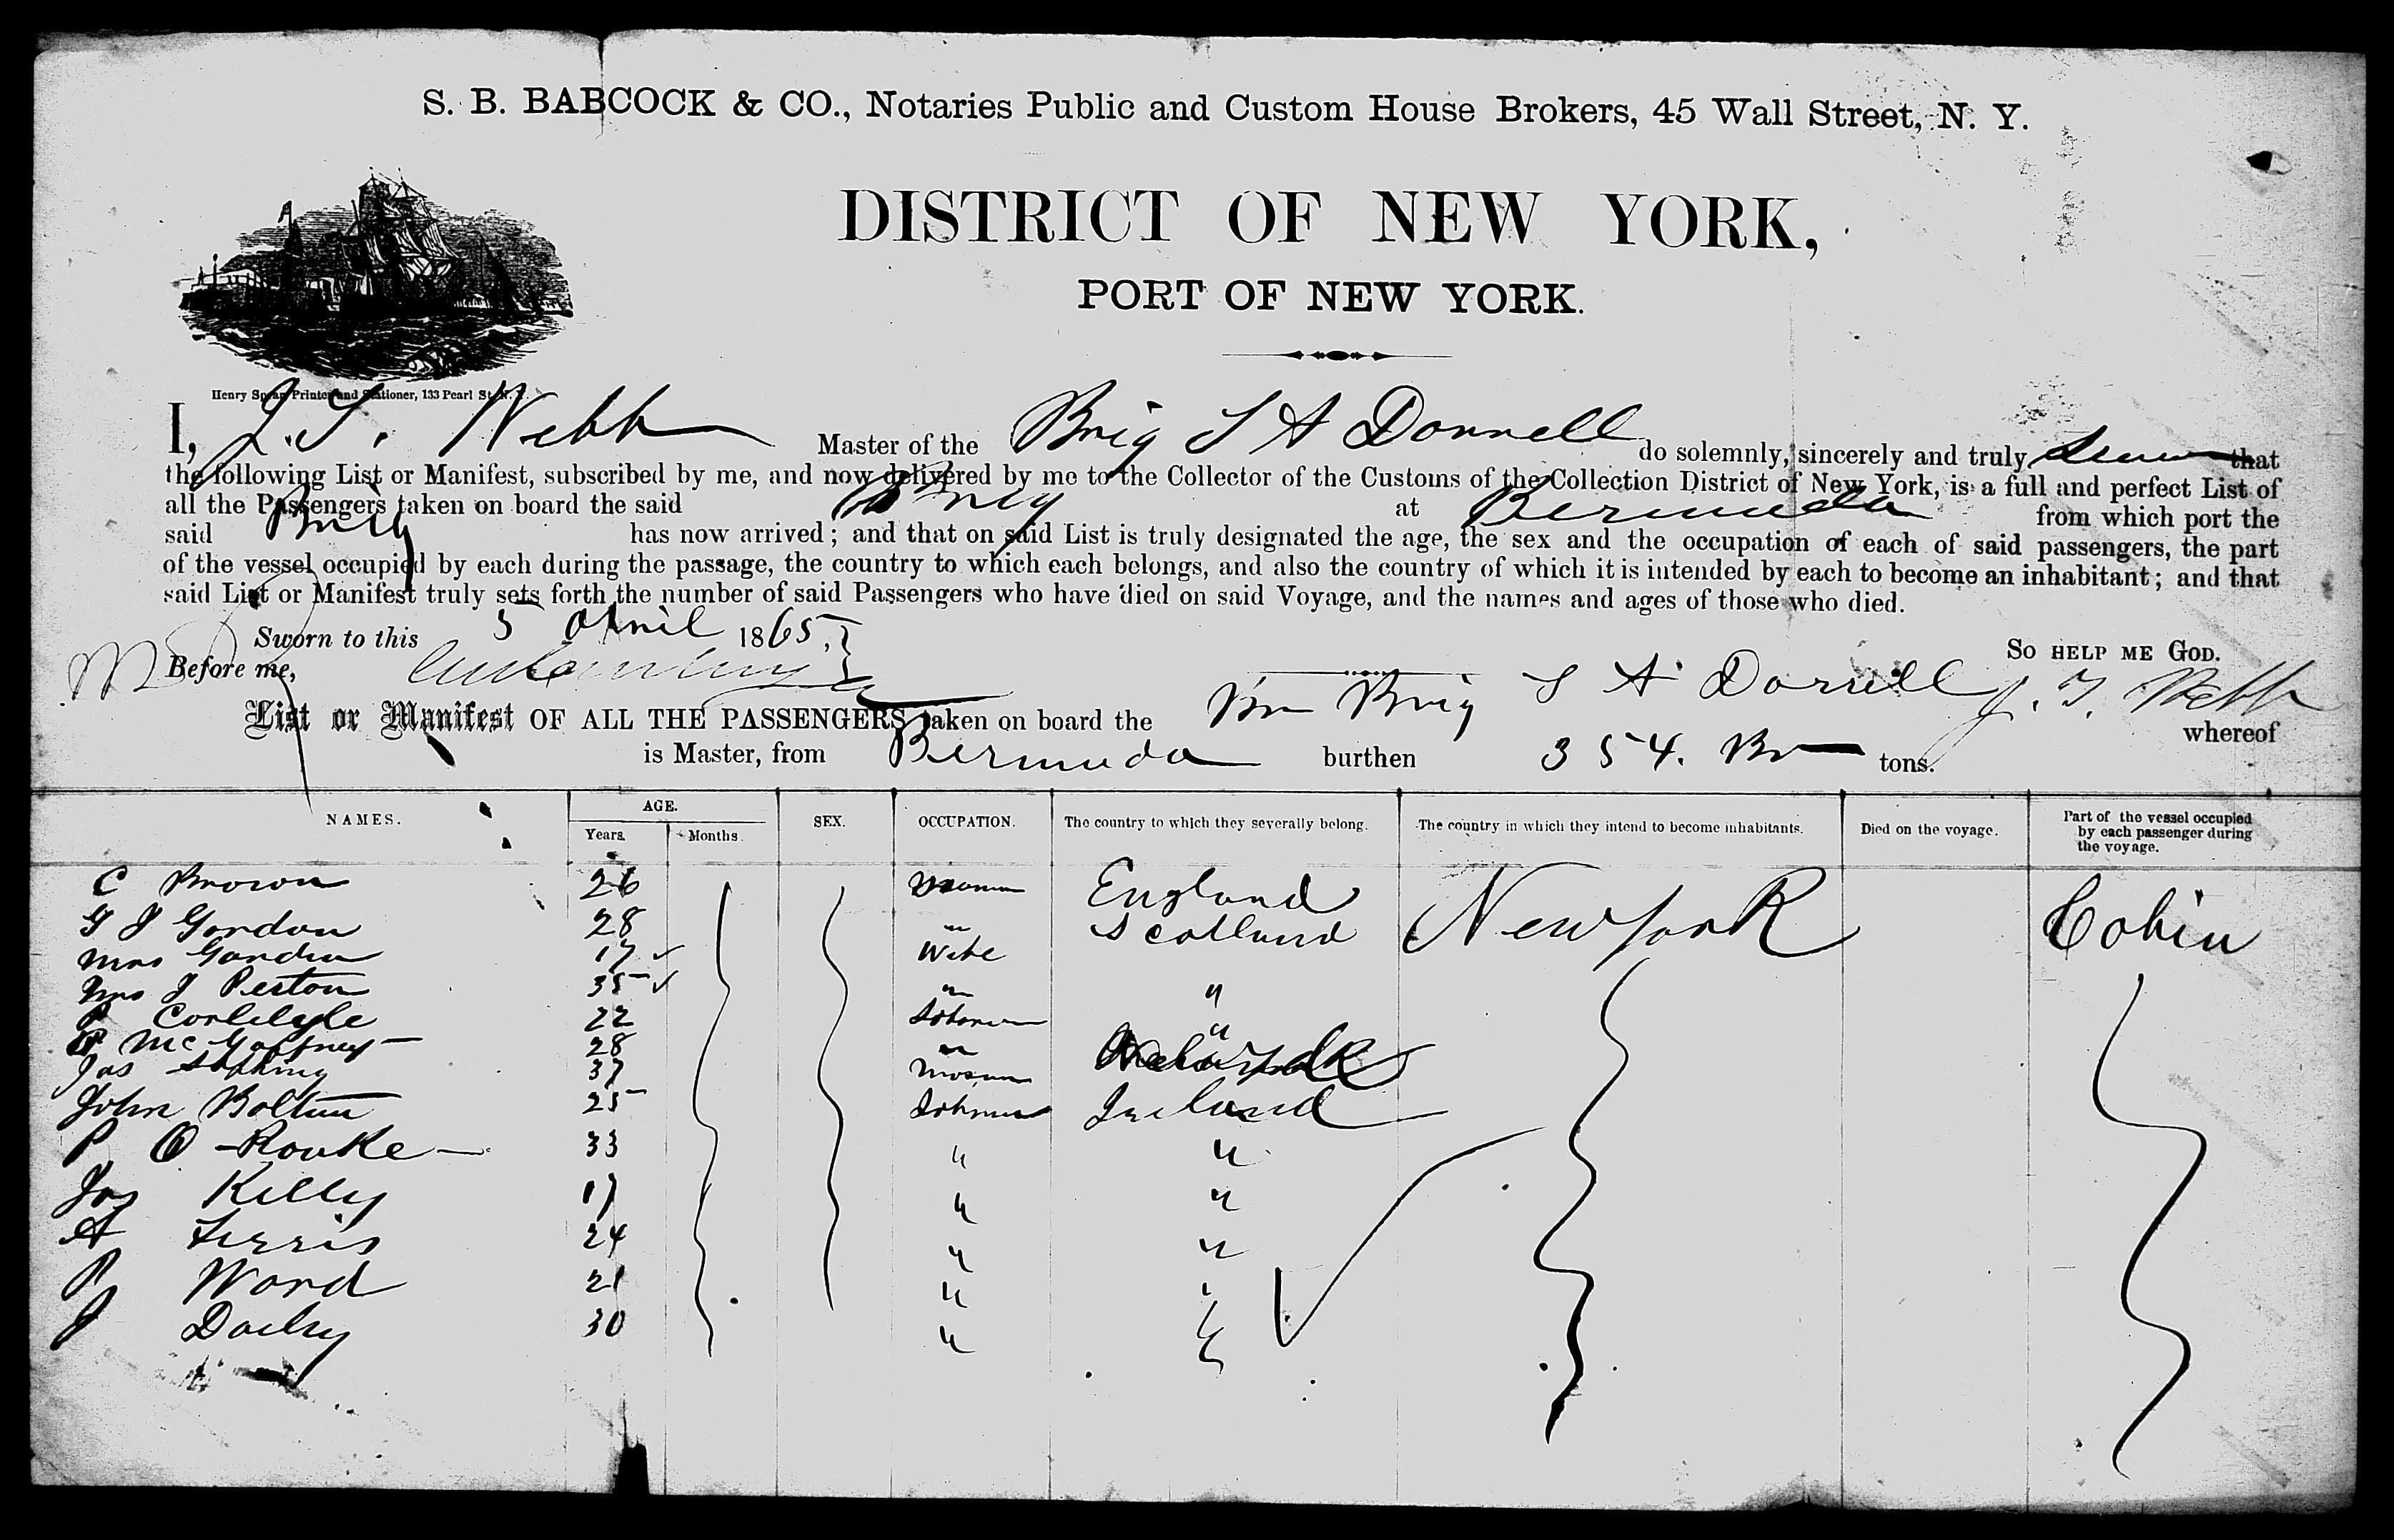 S. B. BABCOCK & CO., Notaries Public and Custom House Brokers, 45 Wall Street, N. Y.
DISTRICT OF NEW YORK,
PORT OF NEW YORK.
Henry Printer and Stationer, 133 Pearl St. N. Y.
I, J. T. Webb Master of the Brig S A Dorrell do solemnly, sincerely and truly swear that
the following List or Manifest, subscribed by me, and now delivered by me to the Collector of the Customs of the Collection District of New York, is a full and perfect List of
all the Passengers taken on board the said Brig at Bermuda from which port the
said Brig has now arrived; and that on said List is truly designated the age, the sex and the occupation of each of said passengers, the part
of the vessel occupied by each during the passage, the country to which each belongs, and also the country of which it is intended by each to become an inhabitant; and that
said List or Manifest truly sets forth the number of said Passengers who have died on said Voyage, and the names and ages of those who died.
Sworn to this 5 April 1865. SO HELP ME GOD.
Before me, J. T. Webb
List or Manifest OF ALL THE PASSENGERS taken on board the Brig S A Dorrell whereof
is Master, from Bermuda burthen 354. tons.
NAMES. AGE. Years. Months. SEX. OCCUPATION. The country to which they severally belong. The country in which they intend to become inhabitants. Died on the voyage. Part of the vessel occupied by each passenger during the voyage.
C Brown 26 England New York Cabin
G J Gordon 28 " Scotland
Mrs Gordon 17 Wife
Mrs J Peston 35 " "
22 "
Mc 28 "
Jas 37
John Bolton 25 Ireland
P O Rourke 33 " "
Jas Kelly 17 " "
A Ferris 24 " "
P Ward 21 " "
J Dailey 30 " "